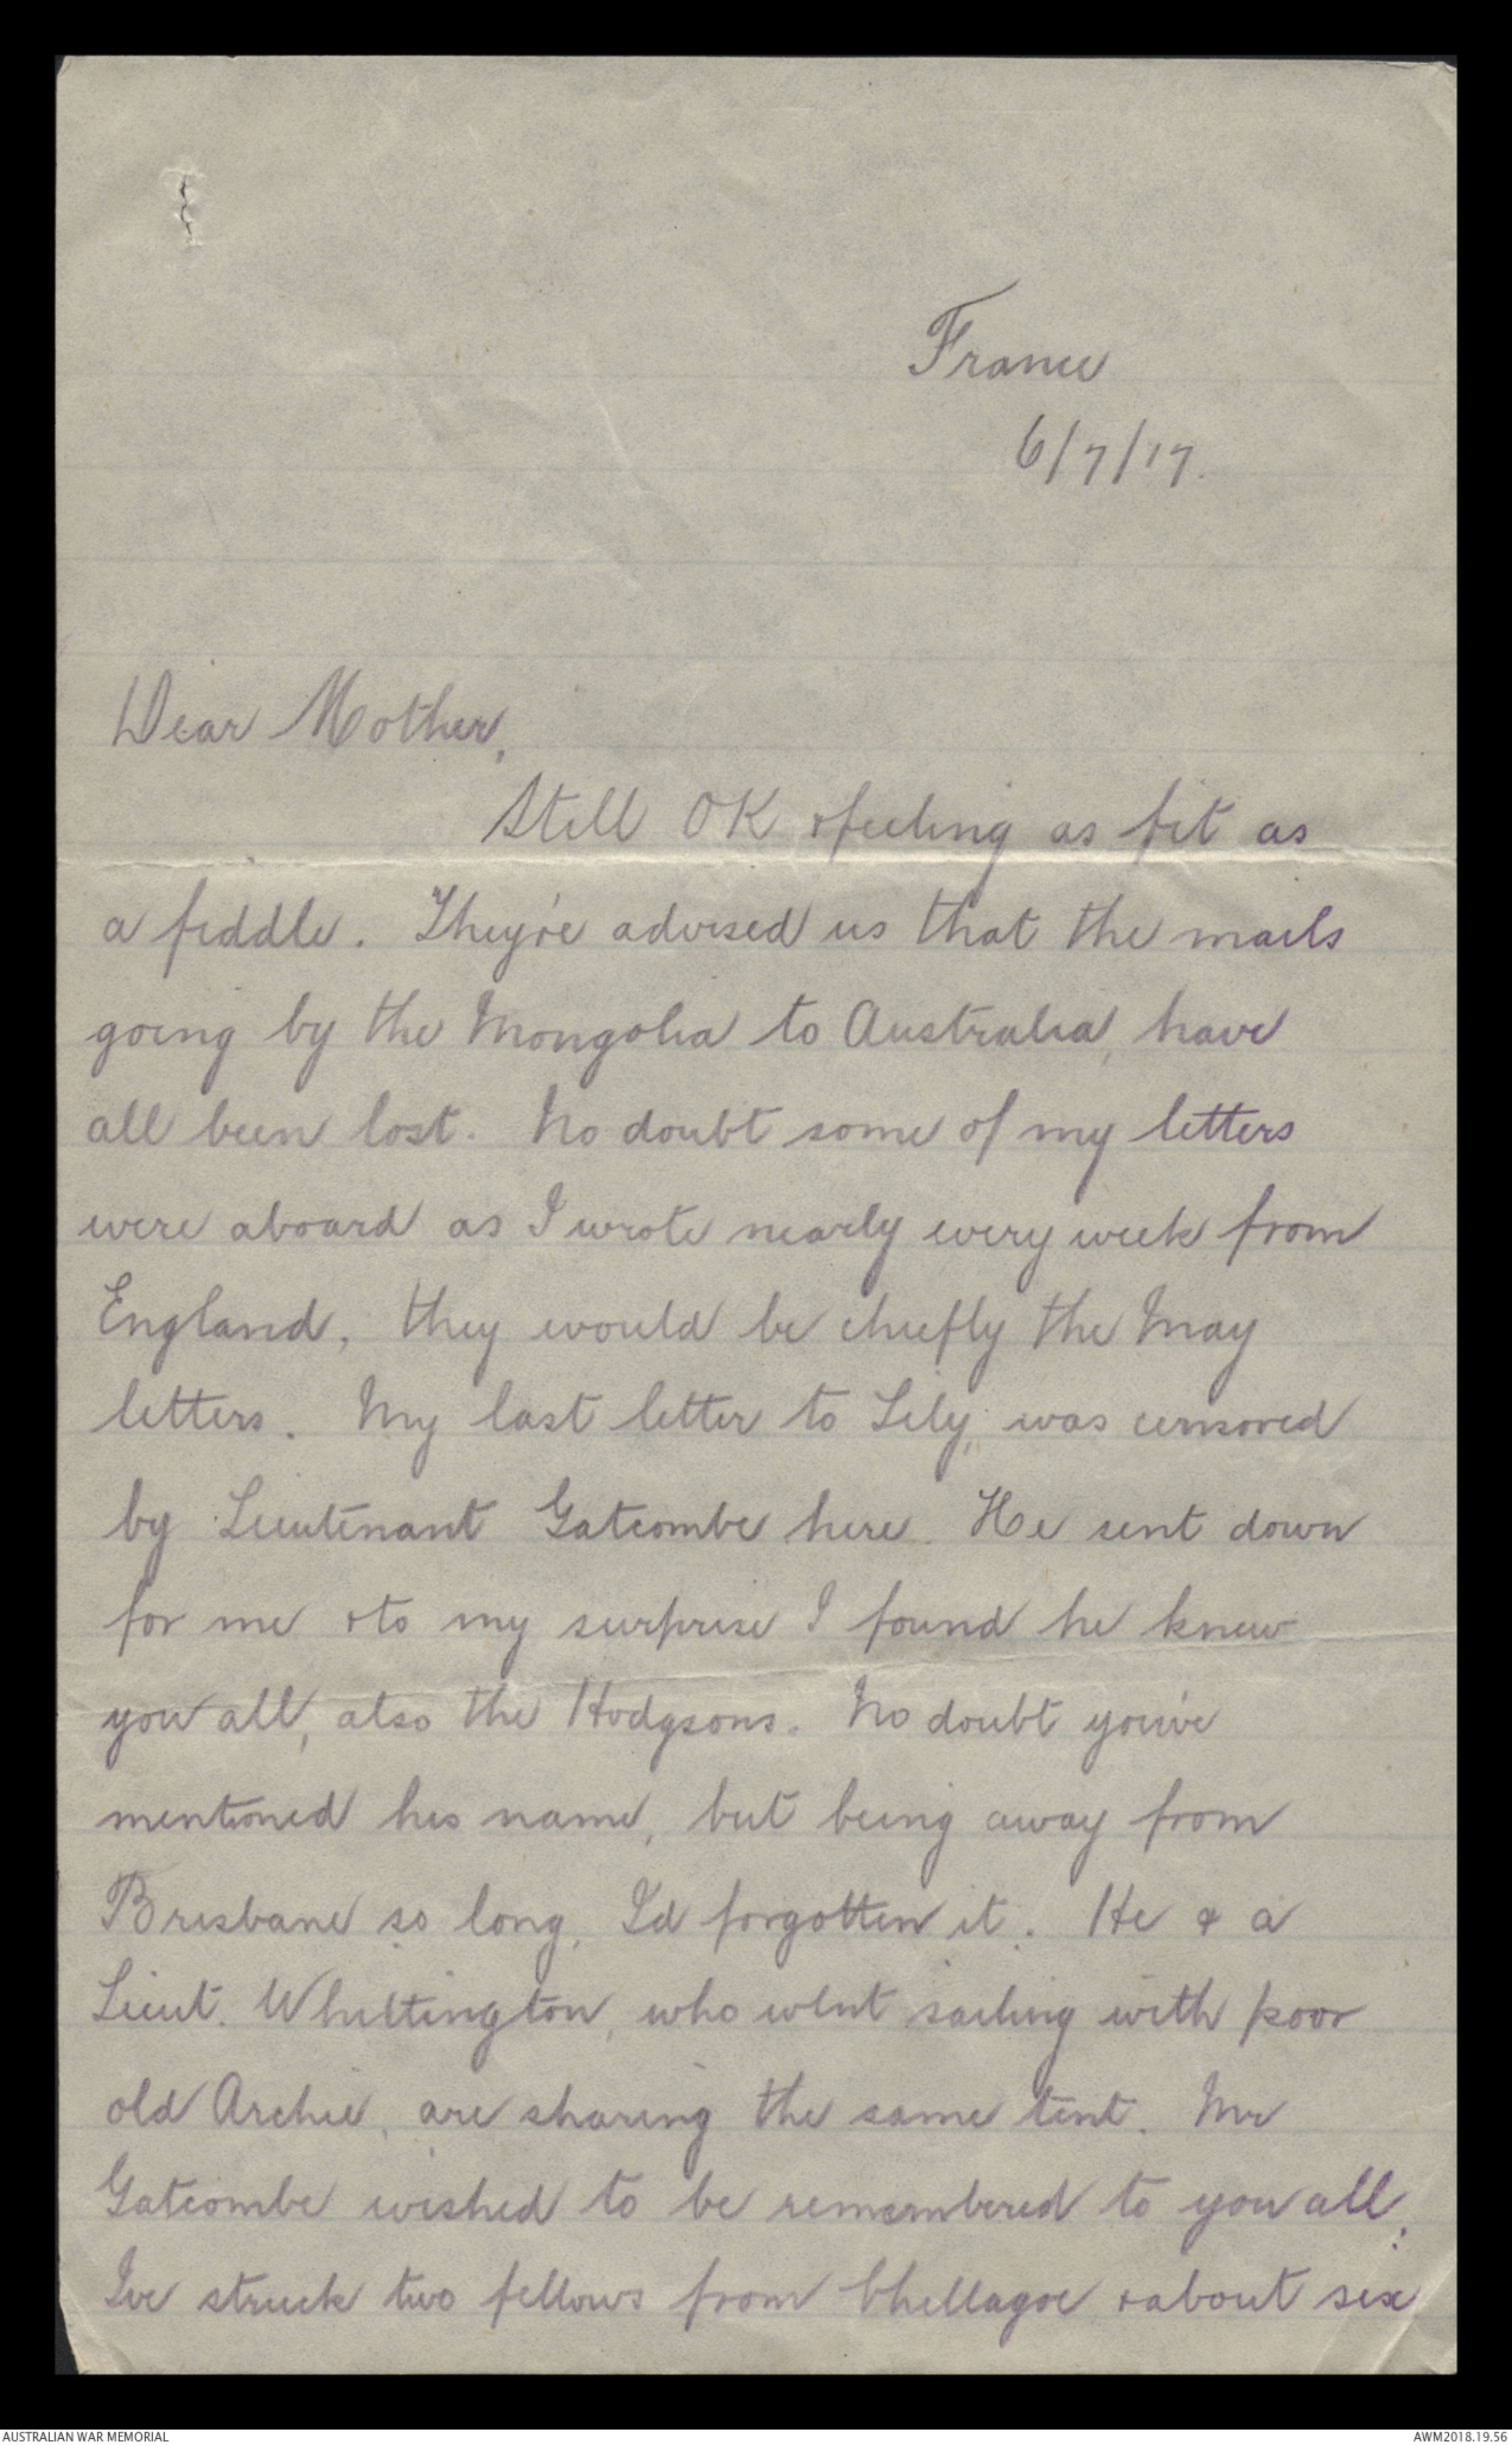 France
6/7/17.
Dear Mother,
Still OK & feeling as fit as
a fiddle. They've advised us that the mails
going by the Mongolia to Australia, have
all been lost. No doubt some of my letters
were aboard as I wrote nearly every week from
England, they would be chiefly the May
letters. My last letter to Lily, was censored
by Lieutenant Gatcombe here. He sent down
for me & to my surprise I found he knew
you all, also the Hodgsons. No doubt you've
mentioned his name, but being away from
Brisbane so long, I'd forgotten it. He & a
Lieut. Whittington, who went sailing with poor
old Archie, are sharing the same tent. Mr
Gatcombe wished to be remembered to you all.
I've struck two fellows from Chillagoe & about six
AUSTRALIAN WAR MEMORIAL
AWM2018.19.56